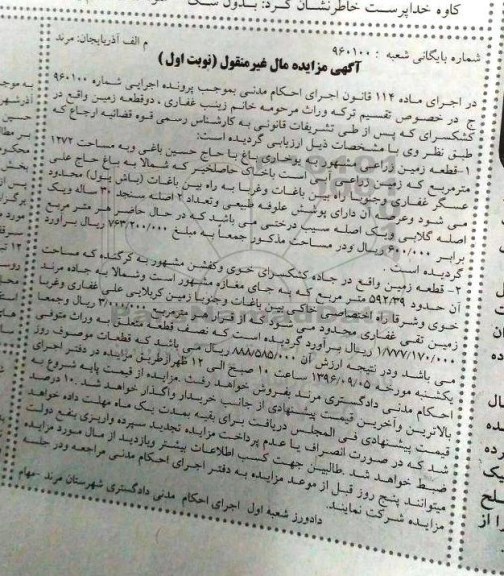 کاوه خداپرست خاطرنشان کرد: بدون شک
شماره بایگانی شعبه : ۹۶۰۱۰۰
م الف آذربایجان: مرند
آگهی مزایده مال غیرمنقول (نوبت اول)
در اجرای ماده ۱۱۴ قانون اجرای احکام مدنی بموجب پرونده اجرایی شماره ۹۶۰۱۰۰
ج در خصوص تقسیم ترکه وراث مرحومه خانم زینب غفاری ، دوقطعه زمین واقع در
کشکسرای که پس از طی تشریفات قانونی به کارشناس رسمی قوه قضائیه ارجاع که
طبق نظر وی با مشخصات ذیل ارزیابی گردیده است:
۱-قطعه زمین زراعی مشهور به یوخاری باغ یا حاج حسین باغی وبه مساحت ۱۲۷۲
مترمربع که زمین زراعی آبی است باخاک حاصلخیز که شمالا به باغ حاج علی
عسگر غفاری وجنوبا راه بین باغات وغربا به راه بین باغات (باش یول) محدود
می شود وعرصه آن دارای پوشش علوفه طبیعی وتعداد ۲ اصله سنجد ۳۰ ساله ویک
اصله گلابی ویک اصله سیب درختی می باشد که در حال حاضر هر متر مربع
برابر ۶۰۰/۰۰۰ ریال ودر مساحت مذکور جمعاً به مبلغ ۷۶۳/۲۰۰/۰۰۰ ریال برآورد
گردیده است .
۲- قطعه زمین واقع در جاده کشکسرای خوی وکفشن مشهور به کرگنده که مساحت
آن حدود ۵۹۲/۳۹ متر مربع که به جای مغازه مشهور است وشمالا به جاده مرند
خوی وشرقا راه اختصاصی بین باغات وجنوبا زمین کربلایی علی غفاری وغربا
زمین تقی غفاری محدود می شود که ازقرار هر مترمربع ۳/۰۰۰/۰۰۰ ریال وجمعا
۱/۷۷۷/۱۷۰/۰۰۰ ریال برآورد گردیده است که نصف قطعه متعلق به وراث متوفی
می باشد ودر نتیجه ارزش آن ۸۸۸/۵۸۵/۰۰۰ ریال می باشد که قطعات موصوف روز
یکشنبه مورخه ۱۳۹۶/۰۹/۰۵ ساعت ۱۰ صبح الی ۱۲ ظهر ازطریق مزایده در دفتر اجرای
احکام مدنی دادگستری مرند بفروش خواهد رفت .مزایده از قیمت پایه شروع به
بالاترین وآخرین قیمت پیشنهادی از جانب خریدار واگذار خواهد شد .۱۰ درصد
قیمت پیشنهادی فی المجلس دریافت برای بقیه بمدت یک ماه مهلت داده خواهد
شد که در صورت انصراف یا عدم پرداخت مزایده تجدید سپرده واریزی بنفع دولت
ضبط خواهد شد .طالبین جهت کسب اطلاعات بیشتر وبازدید از مال مورد مزایده
میتوانند پنج روز قبل از موعد مزایده به دفتر اجرای احکام مدنی مراجعه ودر جلسه
مزایده شرکت نمایند.
دادورز شعبه اول اجرای احکام مدنی دادگستری شهرستان مرند -مهام